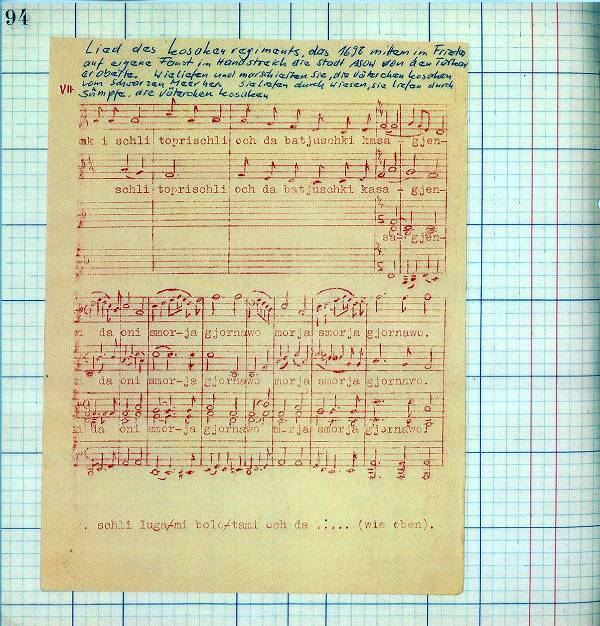 94
Lied des Kosakenregiments, das 1696 mitten im Frieden
auf eigene Faust im Handstreich die Stadt Asow von den Türken
eroberte. Wie liefen und marschierten sie, die Väterchen Kosaken
vom Schwarzen Meer her. Sie liefen durch Wiesen, sie liefen durch
Sümpfe, die Väterchen Kosaken
VII.
ak i schli toprischli och da batjuschki kasa - gjen-
schli toprischli och da batjuschki kasa - gjen-
sa - gjen-
i da oni smor-ja gjornawo morja smorja gjornawo.
da oni smor-ja gjornawo morja smorja gjornawo.
i da oni smor-ja gjornawo morja smorja gjornawo.
. schli luga-mi bolo-tami och da ..... (wie oben).